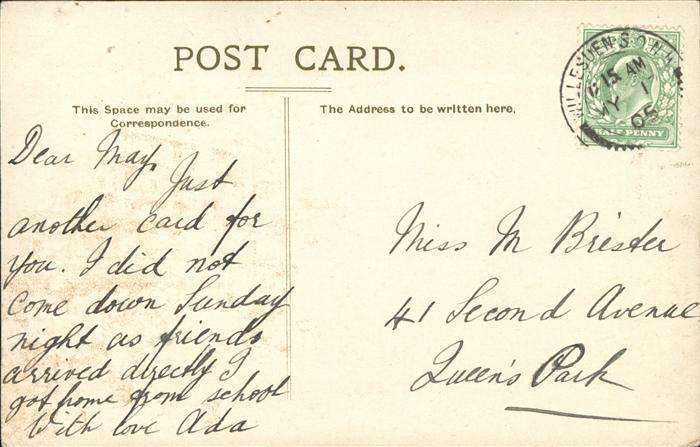 POST CARD.
This Space may be used for
Correspondence.
The Address to be written here.
Dear May, Just
another card for
you. I did not
come down Sunday
night as friends
arrived directly I
got home from school
With love Ada
Miss M Brister
41 Second Avenue
Queen's Park
WILLESDEN S.O. N.W
15 AM
1
05
HALF PENNY